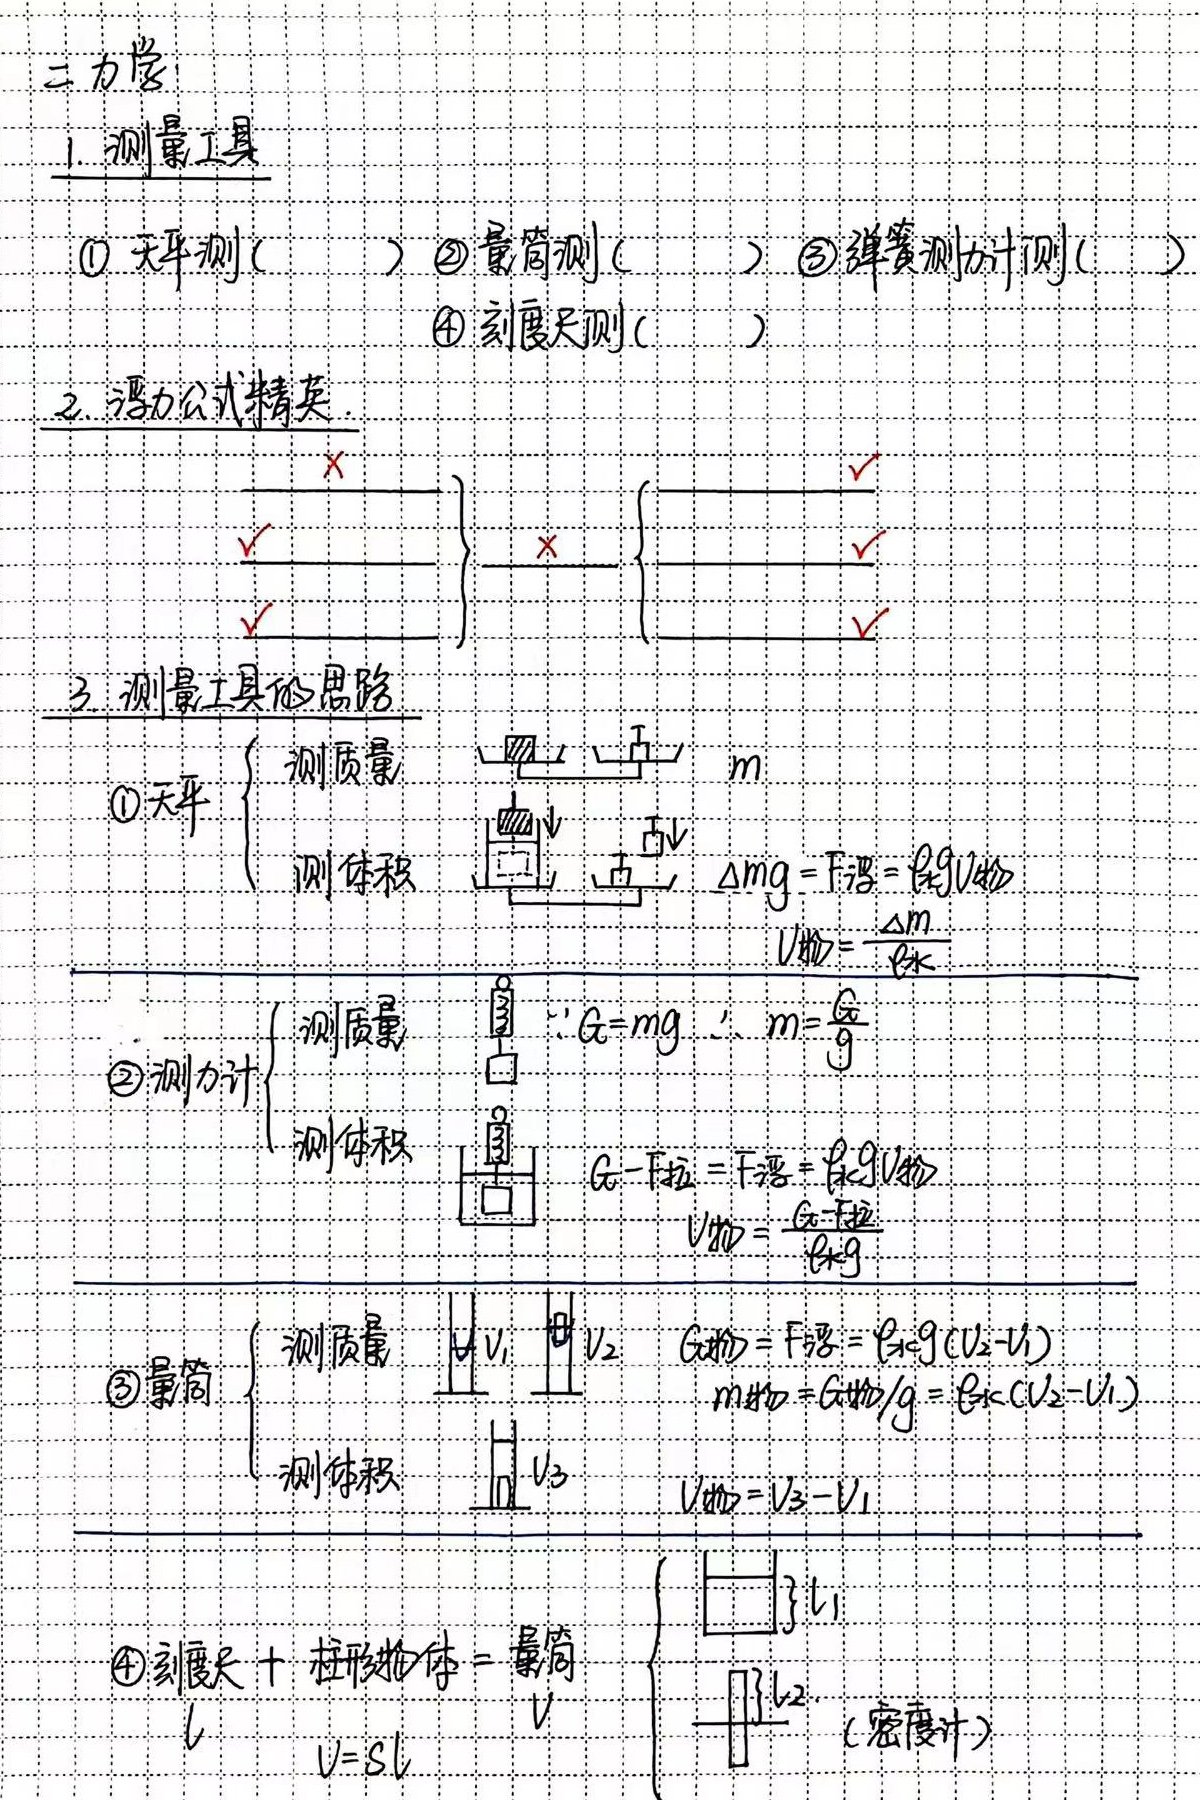 二 力学
1. 测量工具
① 天平测( ) ② 量筒测( ) ③ 弹簧测力计测( )
④ 刻度尺测( )
2. 浮力公式精英.
3. 测量工具的思路
① 天平
测质量 m
测体积 Δmg = F浮 = ρ水gV物
V物 = Δm/ρ水
② 测力计
测质量 ∵ G=mg ∴ m = G/g
测体积
G - F拉 = F浮 = ρ水gV物
V物 = (G-F拉)/ρ水g
③ 量筒
测质量 V1 V2 G物 = F浮 = ρ水g(V2-V1)
m物 = G物/g = ρ水(V2-V1)
测体积 V3 V物 = V3 - V1
④ 刻度尺 + 柱形物体 = 量筒
l V
V = Sl
l1
l2
(密度计)